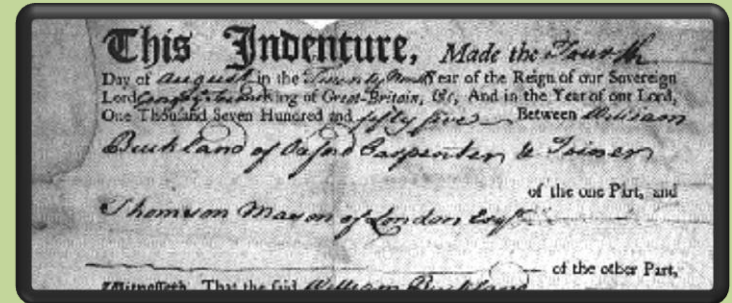 This Indenture, Made the Fourth
Day of August in the Twenty Ninth Year of the Reign of our Sovereign
Lord George Second King of Great-Britain, &c, And in the Year of our Lord,
One Thousand Seven Hundred and fifty five Between William
Buckland of Oxford Carpenter & Joiner
of the one Part, and
Thomson Mason of London Esqr.
of the other Part,
Witnesseth, That the said William Buckland